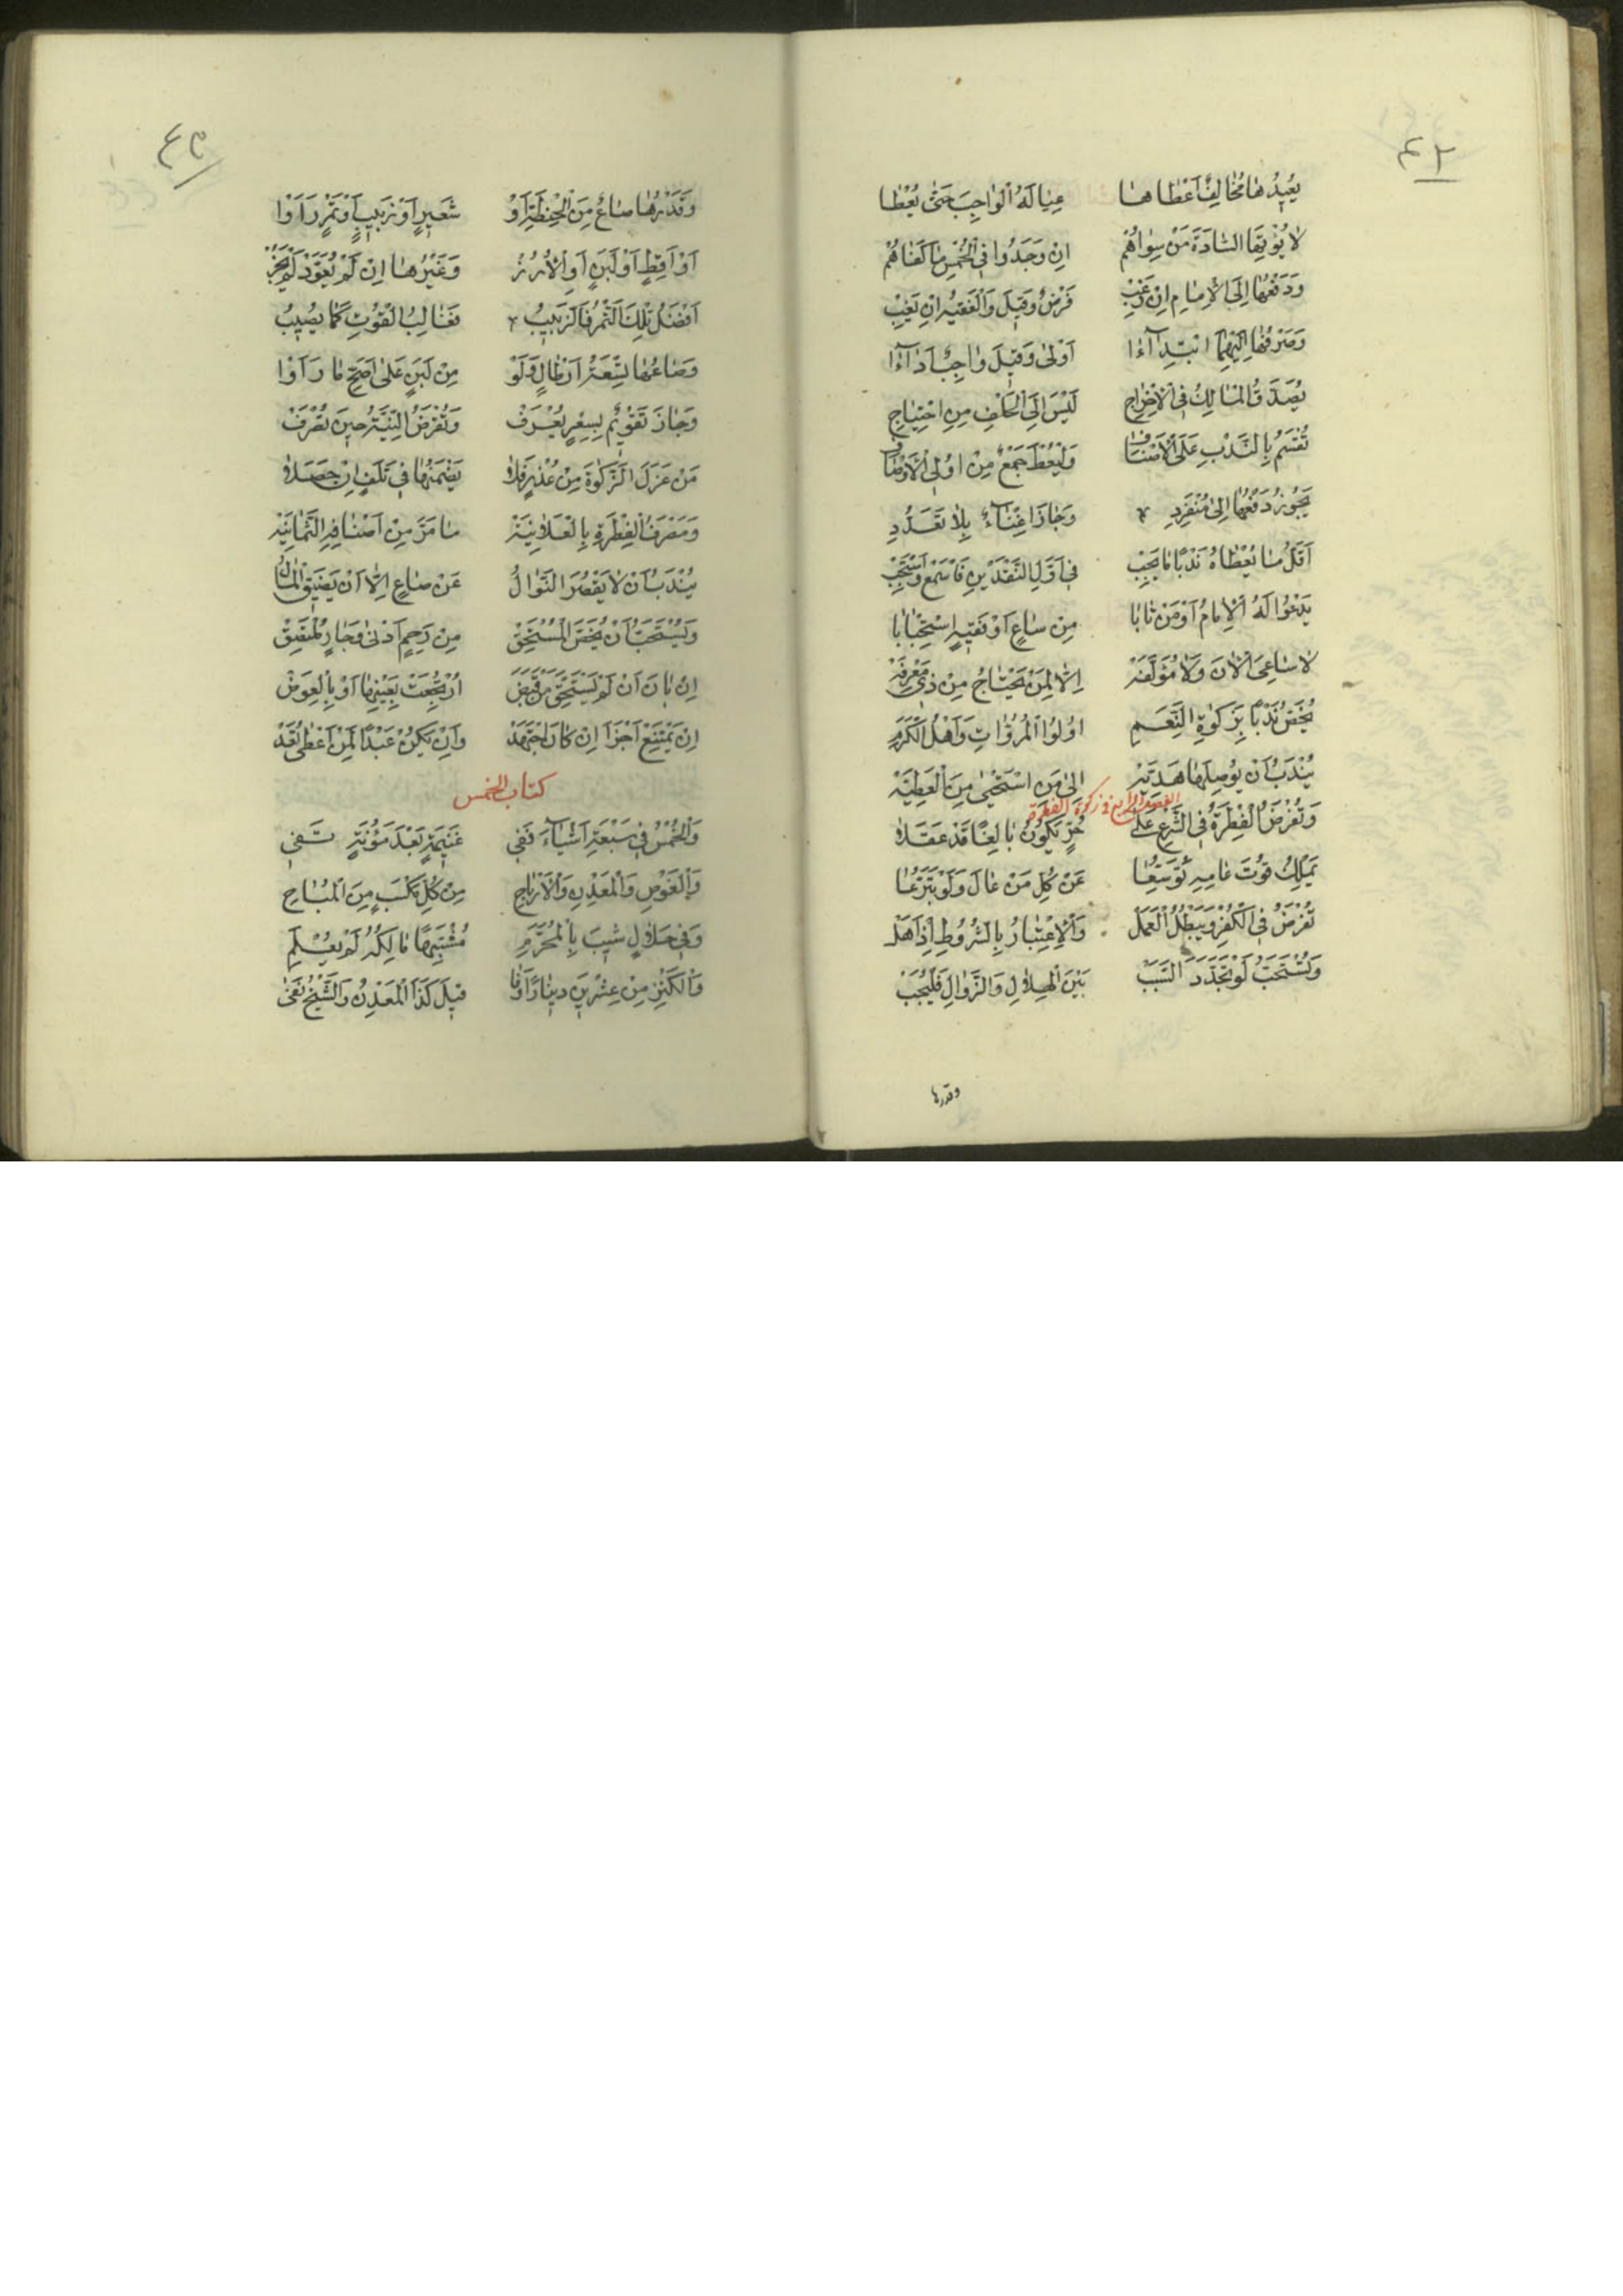 ٤٢
يُعِيدُهَا مُخَالِفٌ أَعْطَاهَا عِيَالَهُ الْوَاجِبَ حَتَّى يُعْطَا
لَا يُؤْتِهَا السَّادَةَ مَنْ سِوَاهُمْ اِنْ وَجَدُوا فِي الْخُمْسِ مَا كَفَاهُمْ
وَدَفْعُهَا اِلَى الْاِمَامِ اِنْ فَرْضٌ وَقِيلَ وَالْفَقِيهُ اِنْ يَغِبْ
وَصَرْفُهَا اِلَيْهِمَا ابْتِدَآءًا اَوْلىٰ وَقِيلَ وَاجِبٌ اَدَآءًا
يُصَدَّقُ الْمَالِكُ فِي الْاِخْرَاجِ لَيْسَ اِلَى الْحَلْفِ مِنِ احْتِيَاجِ
تُقْسَمُ بِالنَّدْبِ عَلَى الْاَصْنَافِ وَلْيُعْطَ جَمْعٌ مِنْ اُولِي الْاَوْصَافِ
يَجُوزُ دَفْعُهَا اِلىٰ مُنْفَرِدِ وَجَازَ اِغْنَاءٌ بِلَا تَعَدُّدِ
اَقَلُّ مَا يُعْطَاهُ نَدْبًا مَا يَجِبْ فِي اَوَّلِ النَّقْدَيْنِ فَاسْمَعْ وَاسْتَجِبْ
يَدْعُوا لَهُ الْاِمَامُ اَوْ مَنْ نَابَا مِنْ سَاعٍ اَوْ فَقِيهٍ اسْتِحْبَابَا
لَا سَاعِيَ الْاٰنَ وَلَا مُؤَلَّفَةْ اِلَّا لِمَنْ يَحْتَاجُ مِنْ ذِي مَعْرِفَةْ
يُخَصُّ نَدْبًا بِزَكٰوةِ النَّعَمِ اُولُوا الْمُرُوَّاتِ وَاَهْلُ الْكَرَمِ
يُنْدَبُ اَنْ يُوصِلَهَا هَدِيَّةْ اِلىٰ مَنِ اسْتَحْيىٰ مِنَ الْعَطِيَّةْ
الفصل الرابع فى زكوة الفطرة
وَتُفْرَضُ الْفِطْرَةُ فِي الشَّرْعِ عَلىٰ حُرٍّ يَكُونُ بَالِغًا قَدْ عَقَلَا
يَمْلِكُ قُوتَ عَامِهِ تَوَسُّعَا عَنْ كُلِّ مَنْ عَالَ وَلَوْ تَبَرُّعَا
تُفْرَضُ فِي الْكُفْرِ وَيَبْطُلُ الْعَمَلْ وَالْاِعْتِبَارُ بِالشُّرُوطِ اِذْ اَهَلْ
وَتُسْتَحَبُّ لَوْ تَجَدَّدَ السَّبَبْ بَيْنَ الْهِلَالِ وَالزَّوَالِ فَلْيُجَبْ
وقدرها
٤٣
وَقَدْرُهَا صَاعٌ مِنَ الْحِنْطَةِ اَوْ شَعِيرٍ اَوْ زَبِيبٍ اَوْ تَمْرٍ رَاَوْا
اَوْ اَقِطٍ اَوْ لَبَنٍ اَوِ الْاُرُزْ وَغَيْرُهَا اِنْ لَمْ يُقَوَّمْ لَمْ يَجُزْ
اَفْضَلُ تِلْكَ التَّمْرُ فَالزَّبِيبُ فَغَالِبُ الْقُوتِ كَمَا يُصِيبُ
وَصَاعُهَا تِسْعَةُ اَرْطَالٍ وَلَوْ مِنْ لَبَنٍ عَلىٰ اَصَحِّ مَا رَاَوْا
وَجَازَ تَقْوِيْمٌ بِسِعْرٍ يُعْرَفُ وَتُفْرَضُ النِّيَّةُ حِينَ تُصْرَفْ
مَنْ عَزَلَ الزَّكٰوةَ مِنْ عُذْرٍ فَلَا يَضْمَنُهَا فِي تَلَفٍ اِنْ حَصَلَا
وَمَصْرَفُ الْفِطْرَةِ بِالْعَلَانِيَةْ مَا مَرَّ مِنْ اَصْنَافِهِ الثَّمَانِيَةْ
يُنْدَبُ اَنْ لَا يَقْصُرَ النَّوَالُ عَنْ صَاعٍ اِلَّا اَنْ يَضِيقَ الْمَالُ
وَيُسْتَحَبُّ اَنْ يُخَصَّ الْمُسْتَحِقْ مِنْ رَحِمٍ اَدْنىٰ وَجَارٍ
اِنْ بَانَ اَنْ لَمْ يَسْتَحِقَّ مَنْ قَبَضْ اُرْتُجِعَتْ بِعَيْنِهَا اَوْ بِالْعِوَضْ
اِنْ يَمْتَنِعْ اَجْزَا اِنْ كَانَ اجْتَهَدْ وَاَنْ يَكُنْ عَبْدًا لِمَنْ اَعْطىٰ فَقَدْ
كتاب الخمس
وَالْخُمْسُ فِي سَبْعَةِ اَشْيَآءَ فَفِي غَنِيمَةٍ بَعْدَ مَؤُنَةٍ تَفِي
وَالْغَوْصِ وَالْمَعْدِنِ وَالْاَرْبَاحِ مِنْ كُلِّ مَكْسَبٍ مِنَ الْمُبَاحِ
وَفِي حَلَالٍ شِيبَ بِالْمُحَرَّمِ مُشْتَبِهًا مَالِكُهُ لَمْ يُعْلَمِ
وَالْكَنْزِ مِنْ عِشْرِينَ دِينَارًا وَفَا قِيلَ كَذَا الْمَعْدِنُ وَالشَّيْخُ نَفىٰ